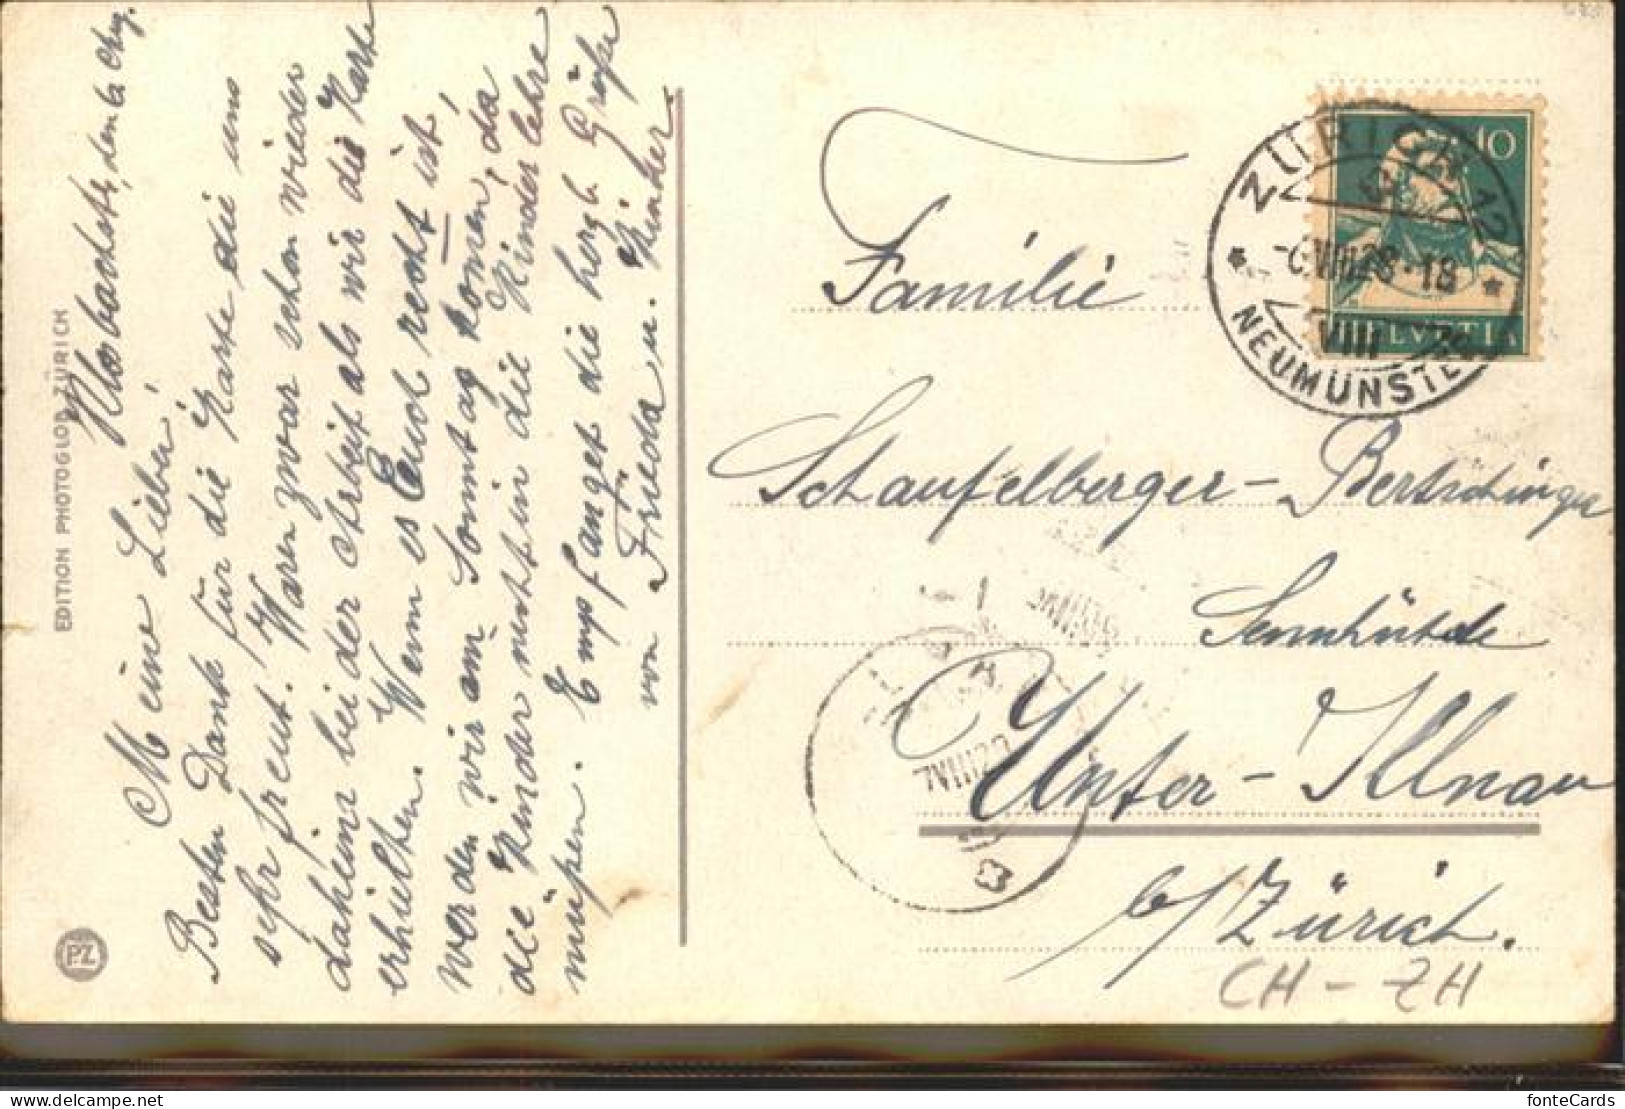 den 6. Aug.
Meine Lieben!
Besten Dank für die Karte die uns
sehr freut. Waren zwar schon wieder
daheim bei der Arbeit als wir die Karte
erhielten. Wenn es Euch recht ist,
werden wir am Sonntag komen, da
die Kinder nicht in die Kinderlehre
müssen. Empfanget die herzl. Grüße
von Frieda u. Kinder
EDITION PHOTOGLOB ZÜRICH
P.Z
Familie
Schaufelberger-Bertschinger
Sennhütte
Unter-Illnau
b/Zürich.
CH - ZH
ZÜRICH 12
-6.VIII.28-18
VIII
NEUMÜNSTER
10
HELVETIA
7VIII28
fonteCards